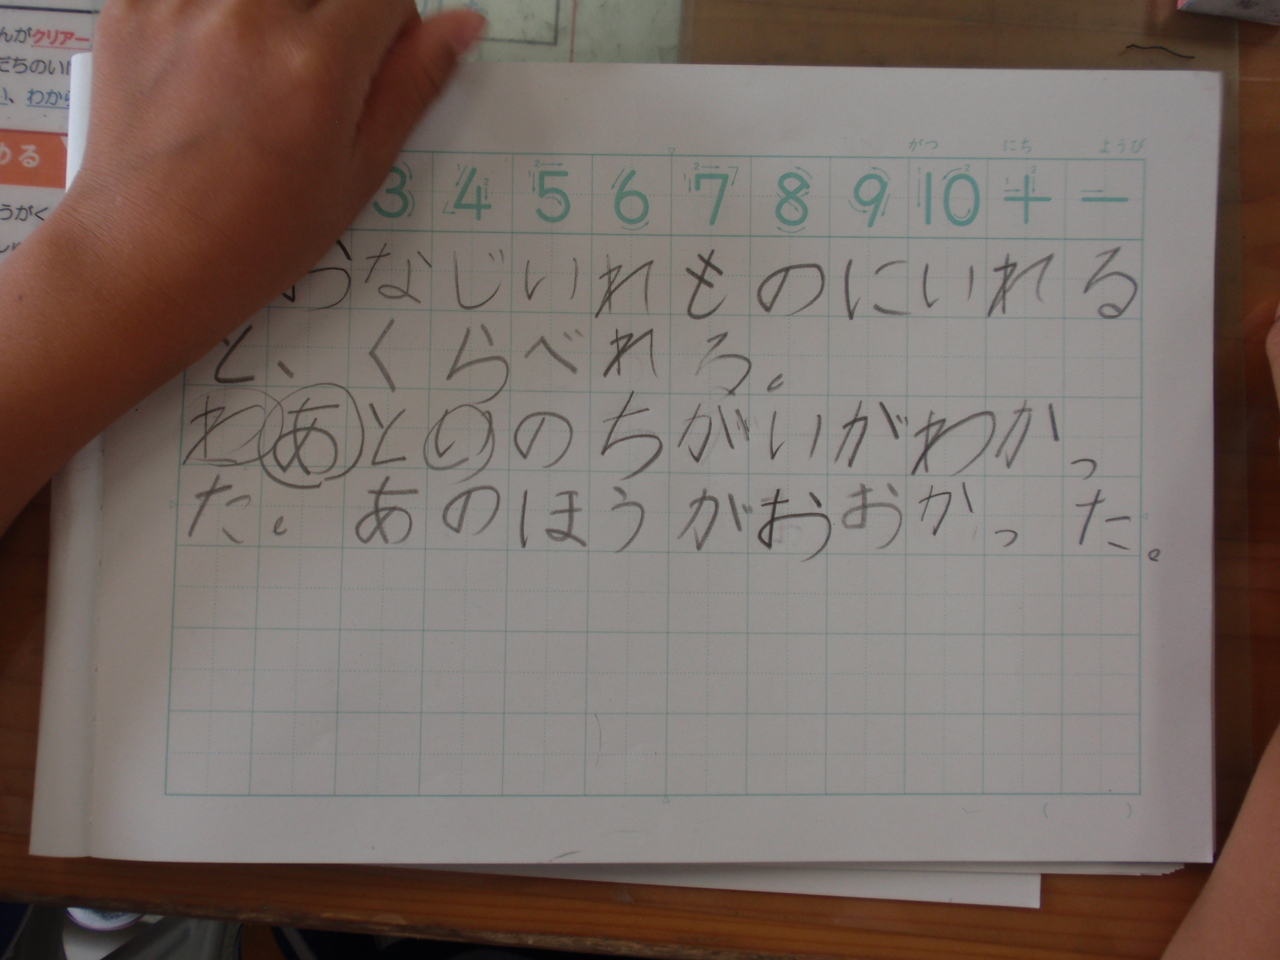 んがクリアー
だちのい
い、わから
める
うがく
がつ にち ようび
3 4 5 6 7 8 9 10 + −
おなじいれものにいれる
と、くらべれる。
わあといのちがいがわかっ
た。あのほうがおおかった。
( )